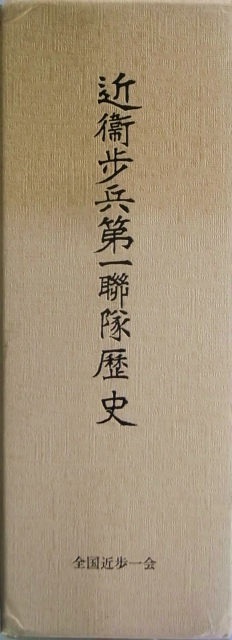 近衞步兵第一聯隊歴史
全国近歩一会